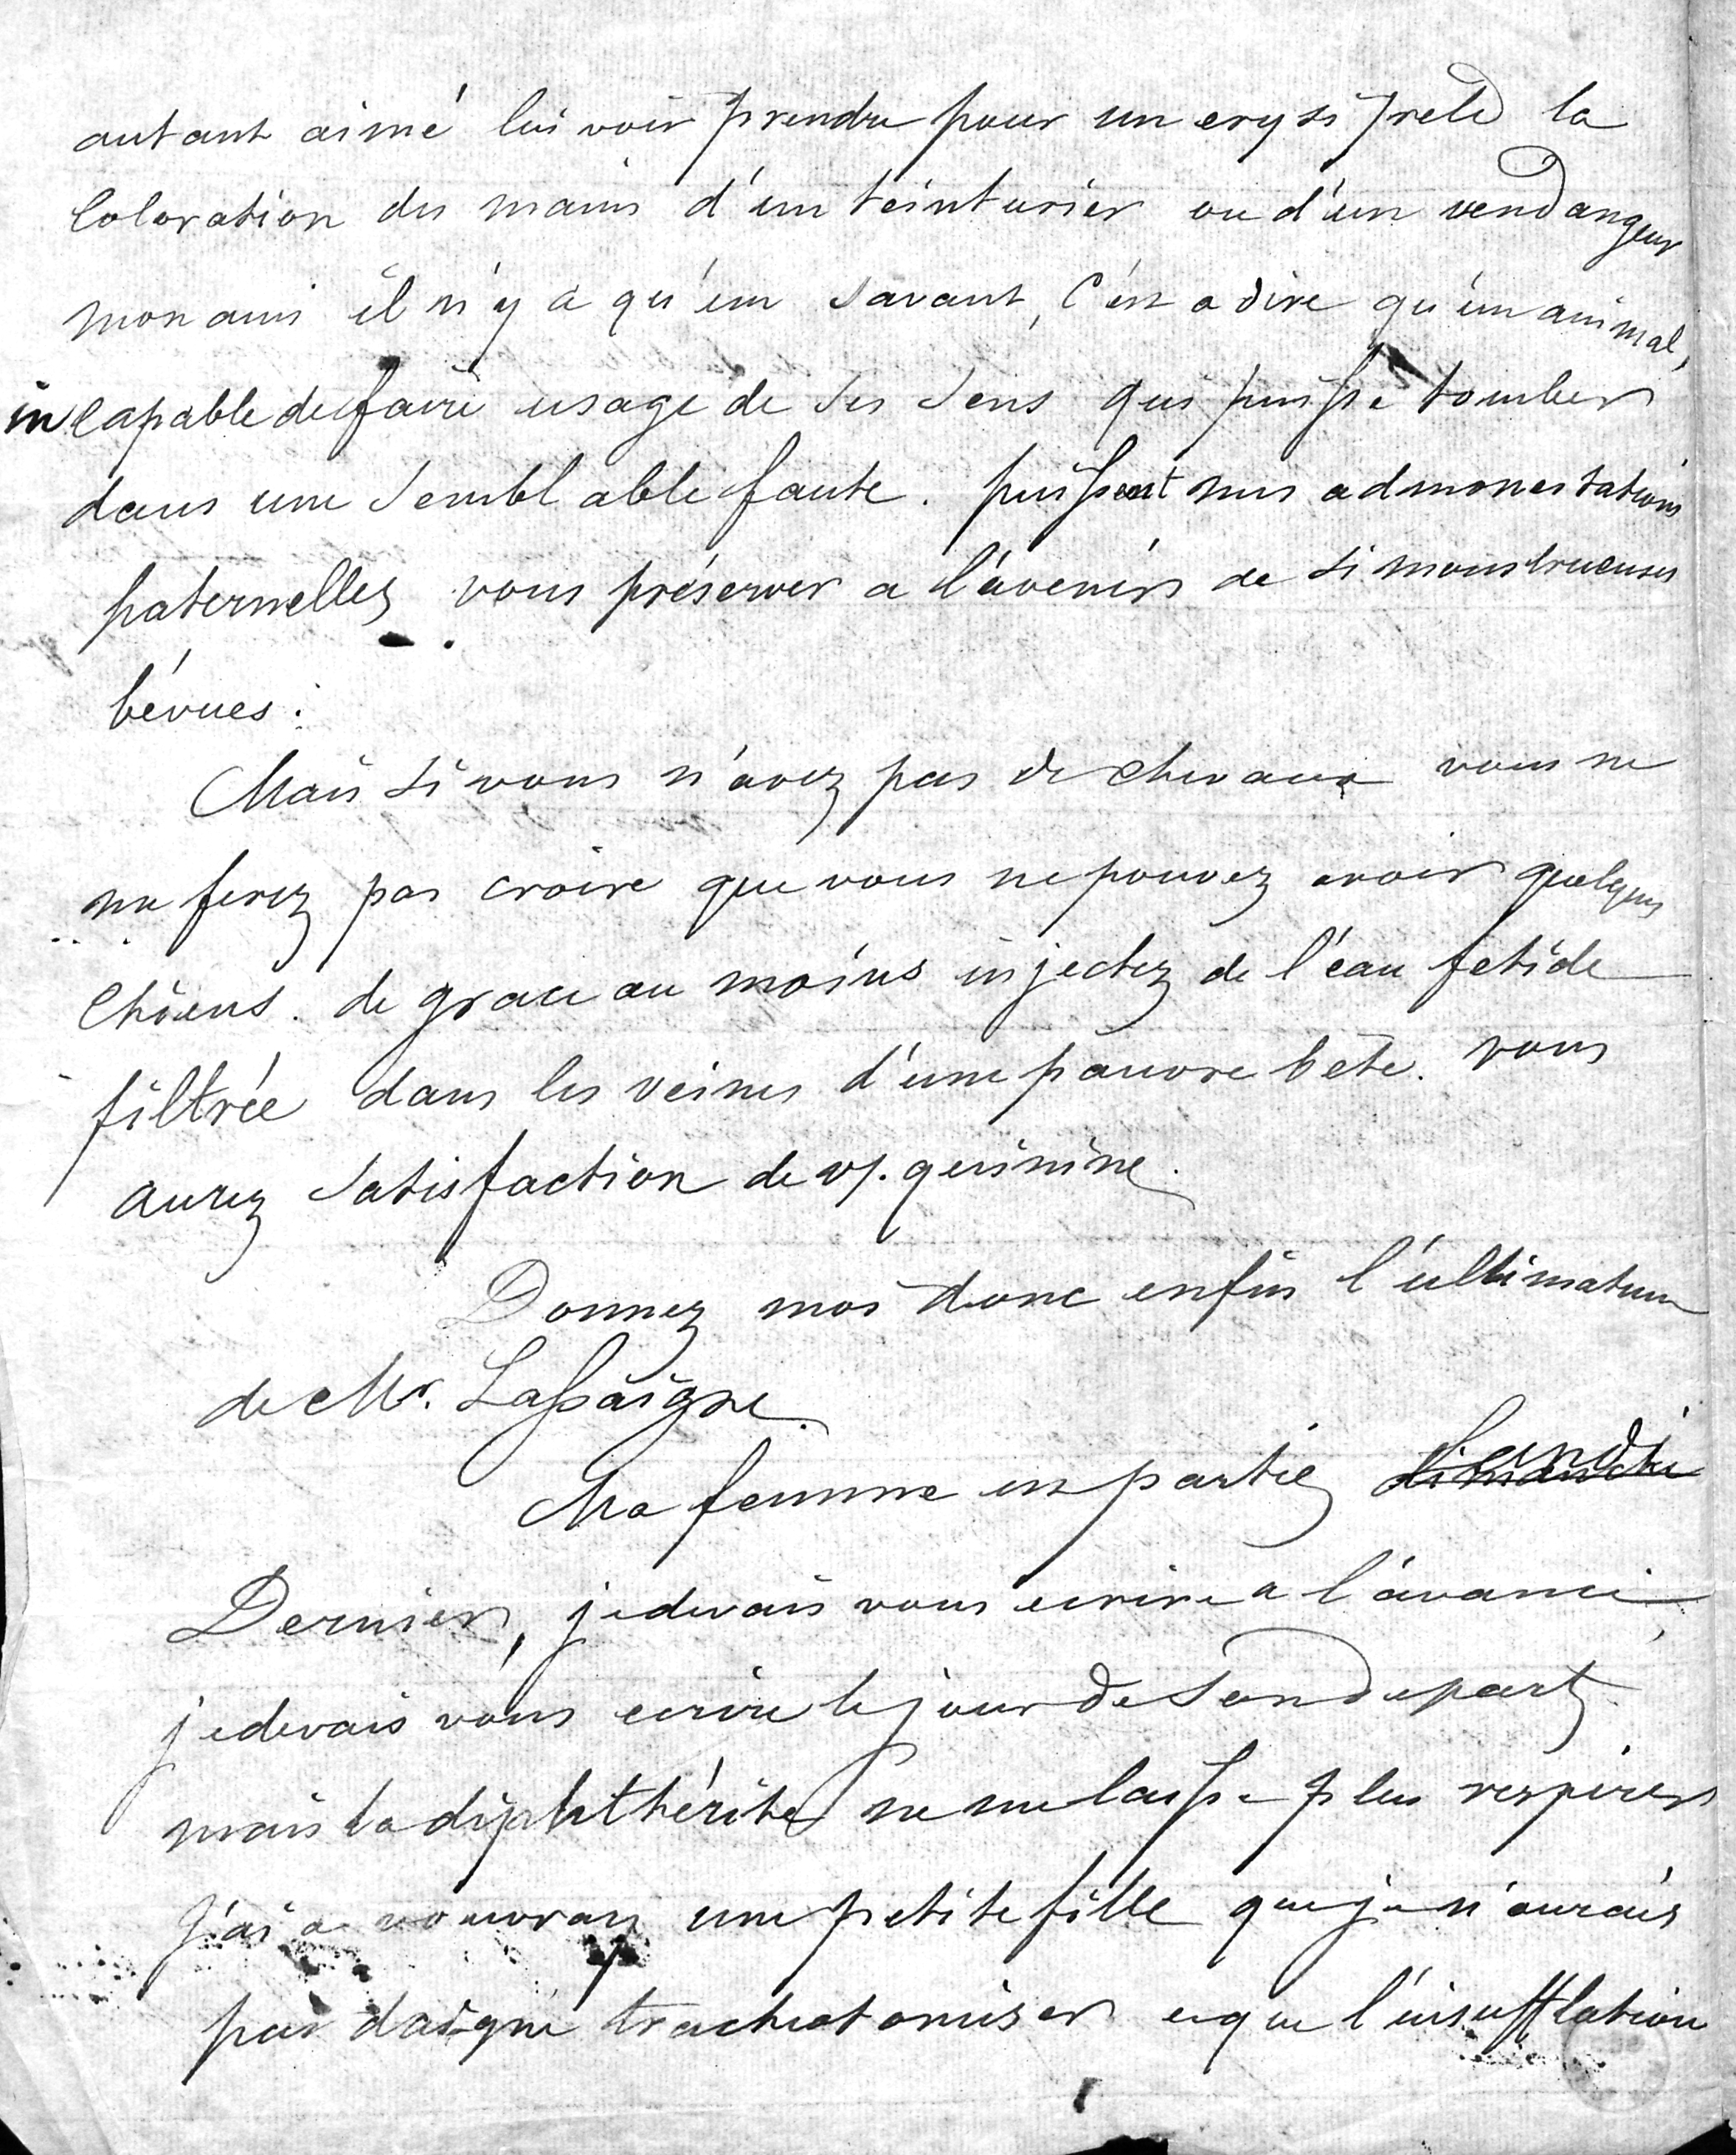 autant aimé lui voir prendre pour un erysiprele la
Coloration des mains d'un teinturier ou d'un vendangeur
mon ami il n'y a qu'un savant, c'est a dire qu'un animal,
incapable de faire usage de ses sens qui puisse tomber
dans une semblable faute. puissent mes admonestations
paternelles vous préserver a l'avenir de si monstrueuses
bévues.
Mais si vous n'avez pas de chevaux vous ne
me ferez pas croire que vous ne pouvez avoir quelques
chiens. de grace au moins injectez de l'eau fetide
filtrée dans les veines d'une pauvre bete. vous
aurez satisfaction de vs. quinine.
Donnez moi donc enfin l'ultimatum
de Mr. Lassaigne.
Ma femme est partie dimanche Lundi
Dernier, je devais vous ecrire a l'avance,
je devais vous ecrire le jour de son depart
mais la diphthérite ne me laisse plus respirer
J'ai a vouvray une petite fille que je n'aurais
pas daigné tracheotomiser et que l'insufflation